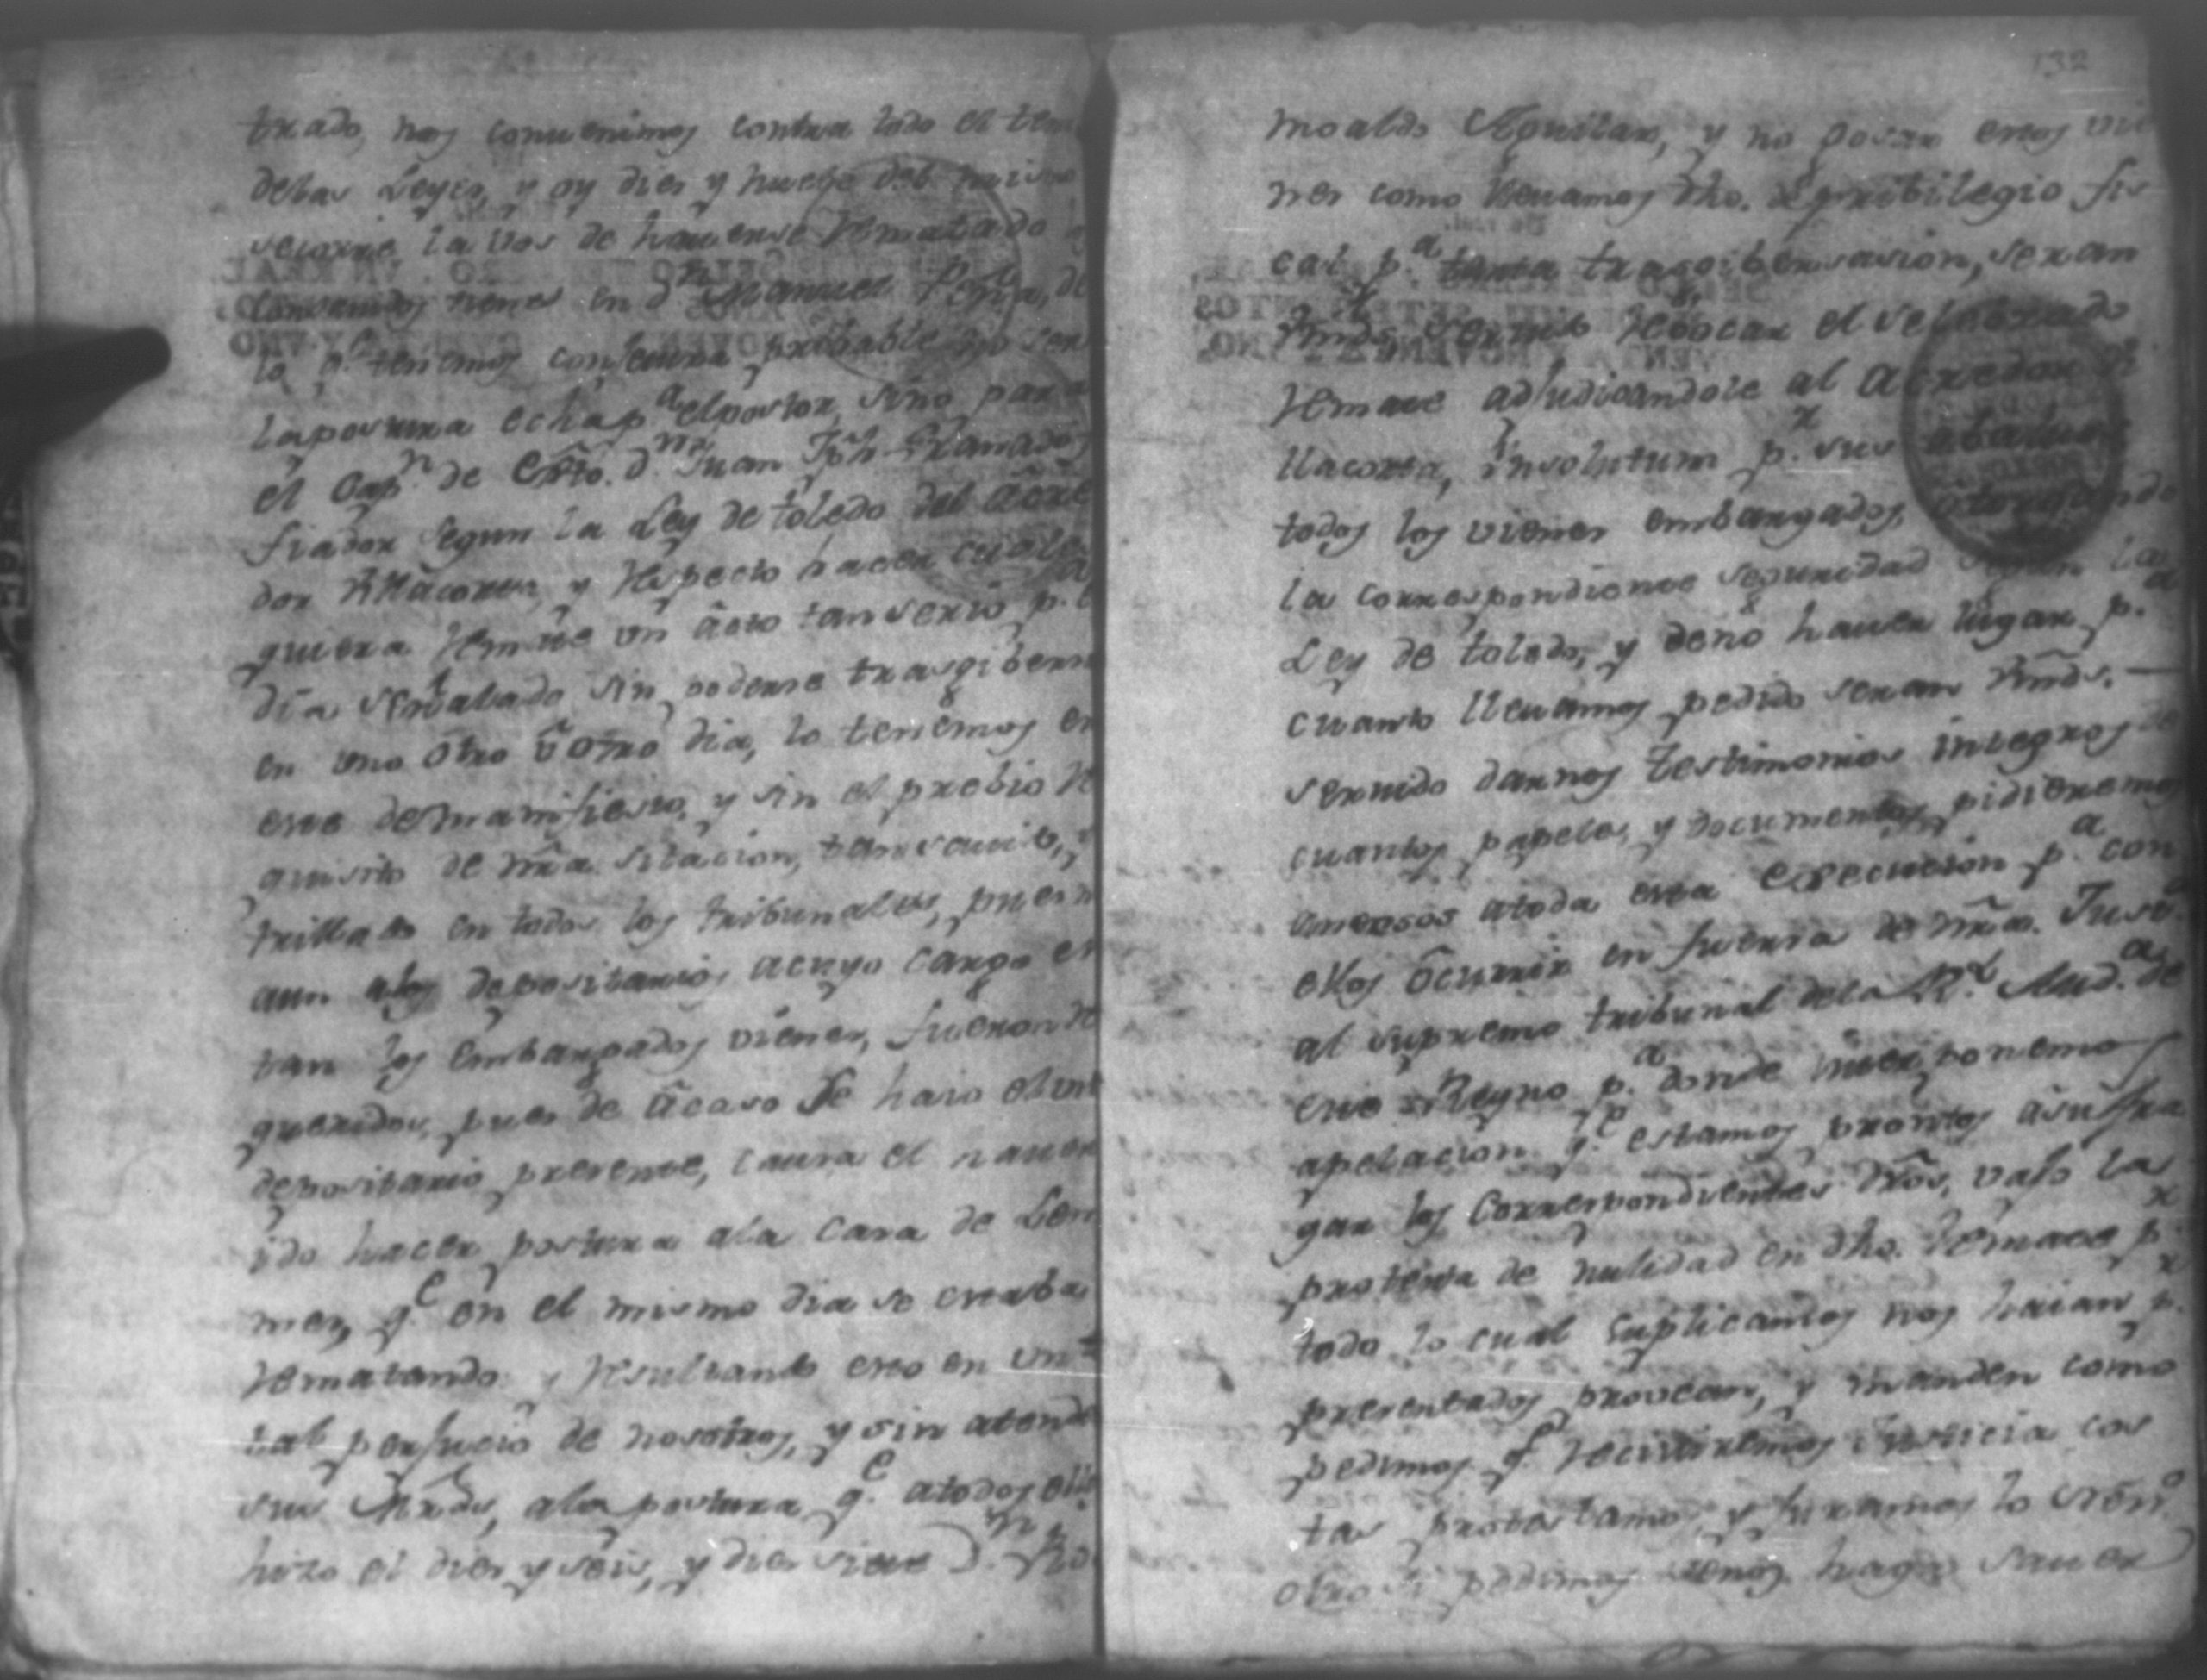 trado, nos conuenimos contra todo el ten
delas Leyes, y oy dies y nueve del mismo
la vos de hauerse rematado
vienes en d.n Manuel
lo q.e tenemos conjetura probable no ser
la postura echa p.a el postor, sino para
el Cap.n de Exto. d.n Juan Jph Granados
fiador segun la Ley de toledo del acre
dor Villacorta, y respecto hacer cual
quiera remate un acto tan serio p.a
dia señalado sin poderse trasgibersa
en uno otro û otro dia, lo tenemos en
este de manifiesto, y sin el prebio re
quisito de nrã sitacion, tan sauido, y
trillado en todos los tribunales, pues n
aun alos depositarios acuyo cargo es
tan los embargados vienes, fueron re
queridos, pues de âcaso se haio el un
depositario presente, causa el hauer
ido hacer postura ala casa de Ler
mes, q.e en el mismo dia se estaba
rematando y resultando esto en un t
tal perjucio de nosotros, y sin atende
sus Mrds, ala postura q.e atodos ello
hizo el dies y seis, y dies siete D.n Ro
132
moaldo Aguilar, y no gosar estos vie
nes como lleuamos dho. el pribilegio fis
cal p.a tanta trasgibersasion, seran
Vmds. seruido rebocar el selebrado
remate adjudicandole al Acredor Vi
llacorta, insolutum p.r sus
todos los vienes embargados, otorgando
la correspondiente seguridad segun la
Ley de toledo, y deno hauer lugar p.a
cuanto lleuamos pedido seran Vmds.
seruido darnos testimonios integros de
cuantos papeles, y documentos pidieremos
anexsos atoda esta execucion p.a con
ellos ôcurrir en fuerza de nrã. Just.a
al supremo tribunal dela R.l Aud.a de
este Reyno p.a donde interponemos
apelacion q.e estamos prontos âsufra
gar los Correspondientes drõs, vajo la
protesta de nulidad en dho. remate p.r
todo lo cual Suplicamos nos haian p.r
presentados provean, y manden como
pedimos q.e reciuiremos Justicia cos
tas protestamos, y juramos lo nesõ
otro si pedimos senos haga sauer